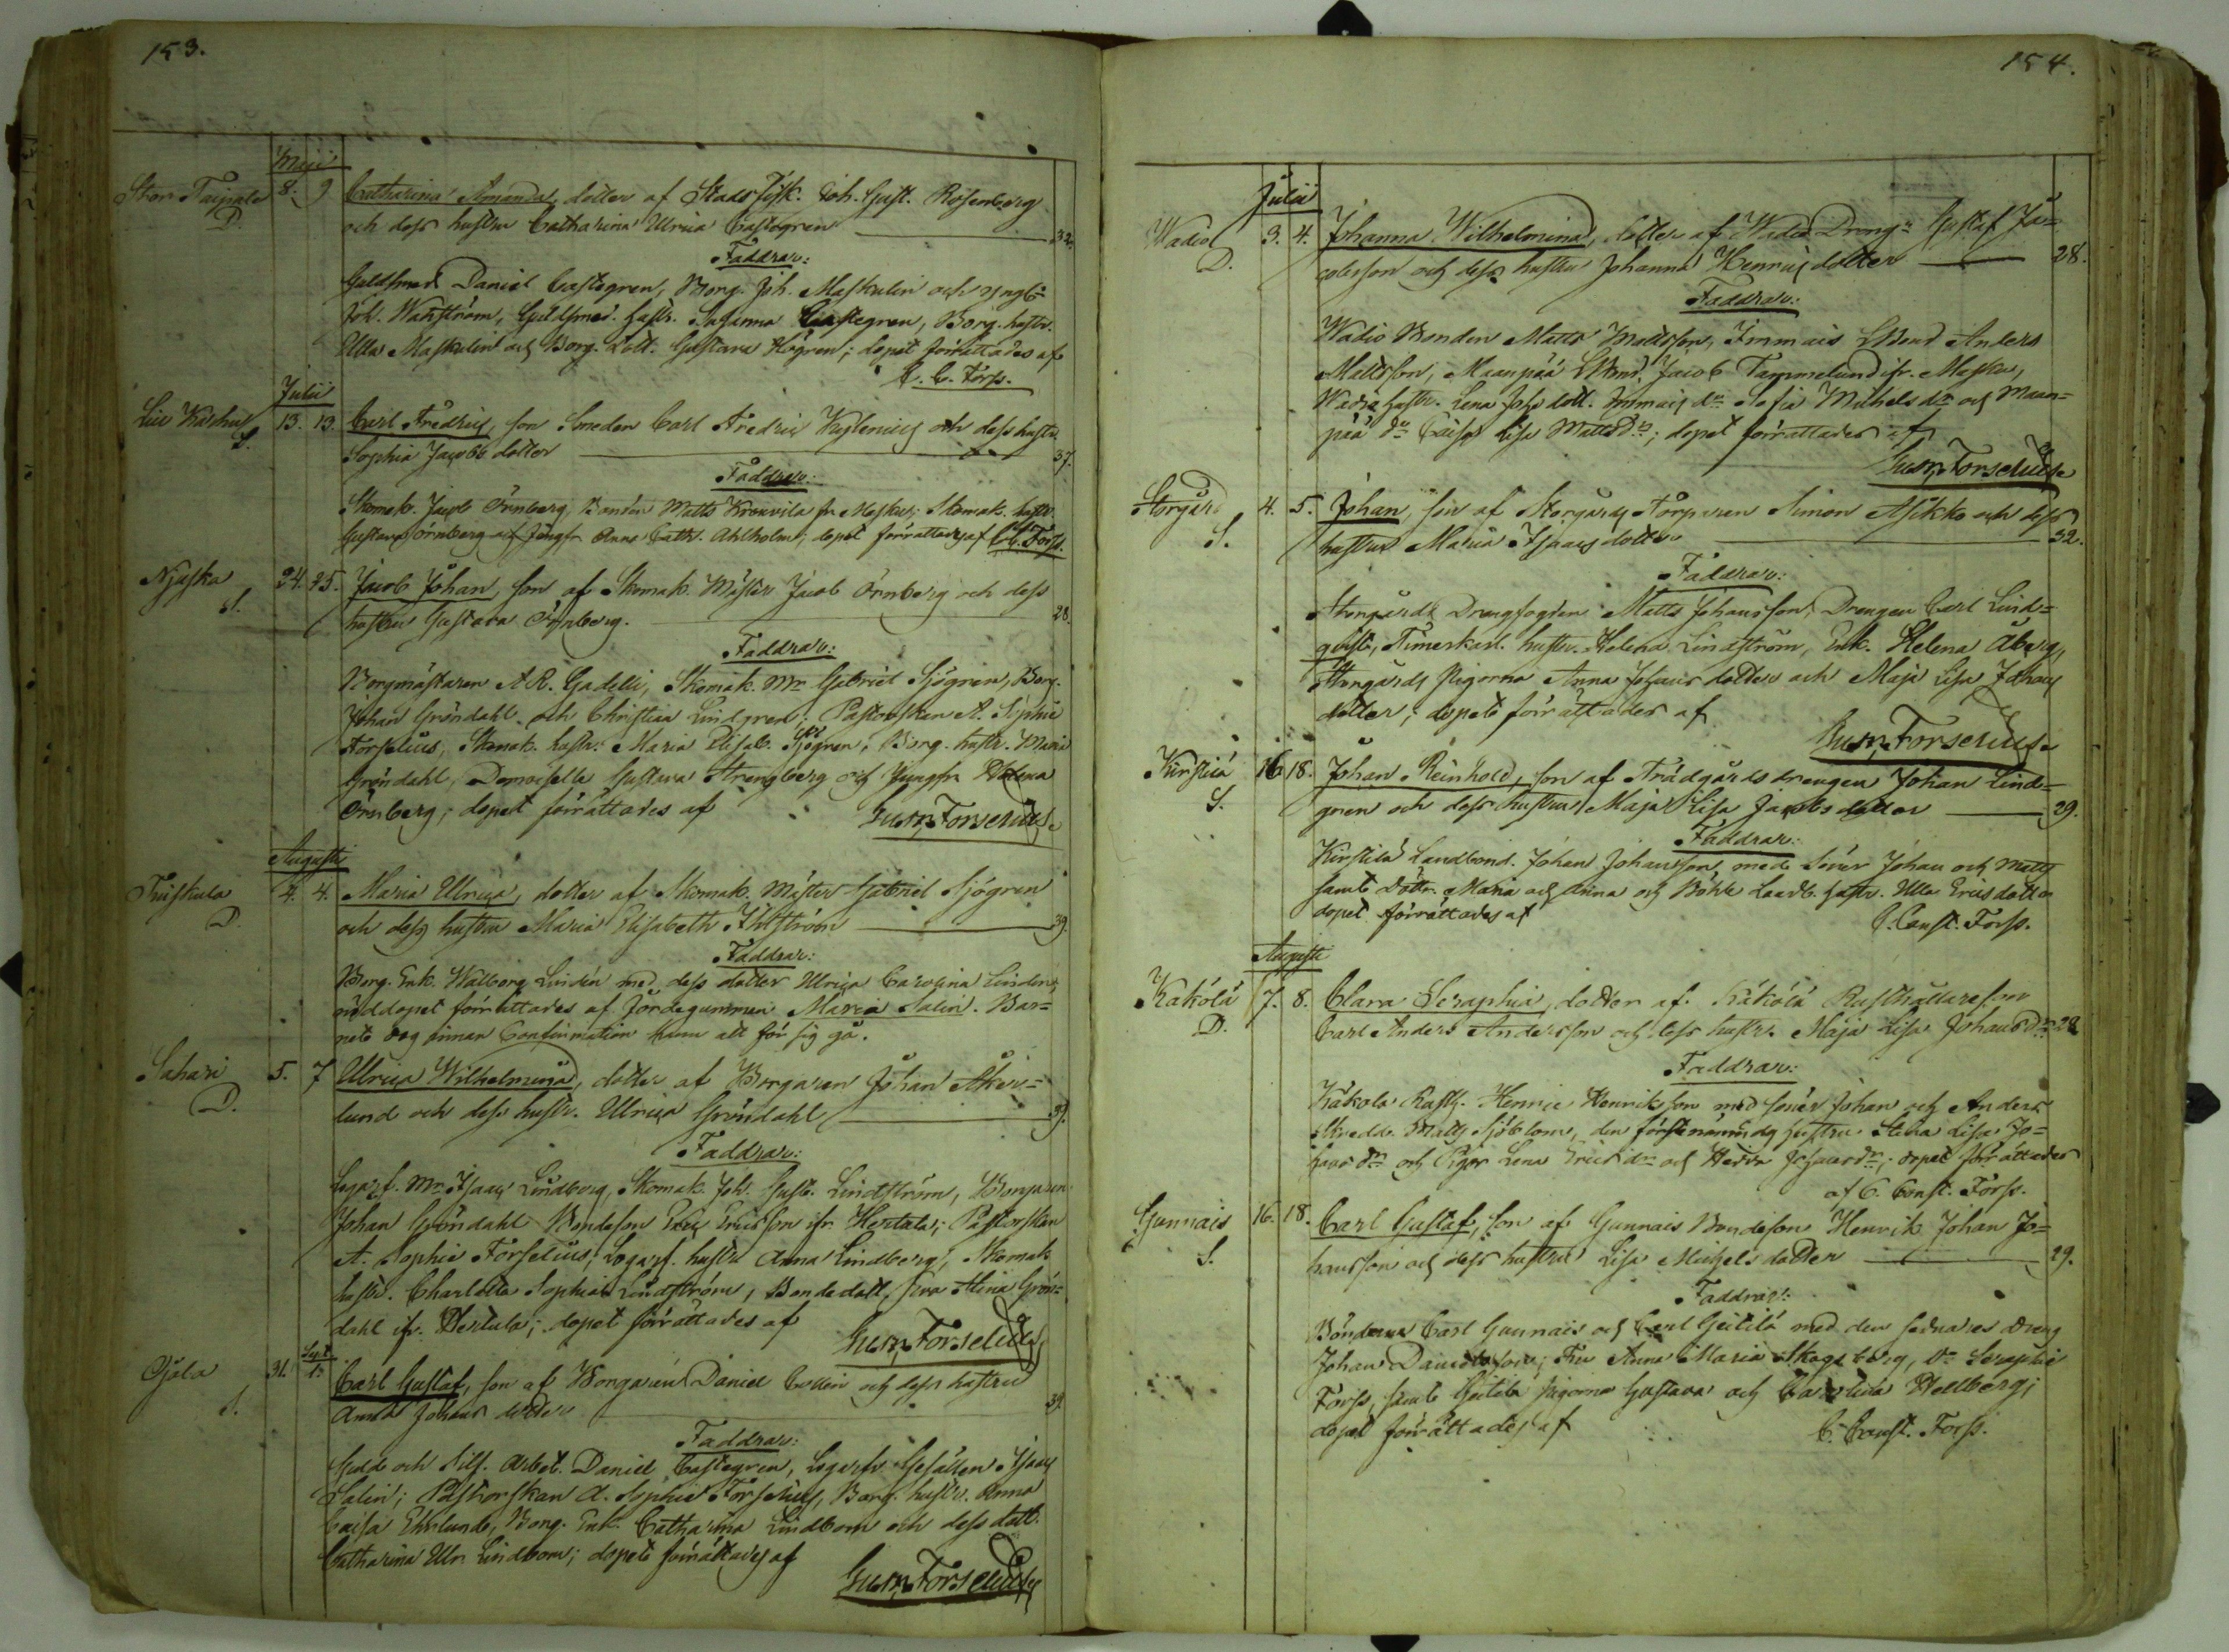 153.
Maji
Stor Taipale 8. 9. Catharina Amanda, dotter af Stads Fisk. Joh. Gust. Rosenberg
D. och dess hustru Catharina Ulrica Castegren 32.
Faddrar:
Guldsmed Daniel Castegren, Borg. Joh. Maskulin och yngl.
Joh. Wahlström, Guldsmed. hustr. Susanna Castegren, Borg. hustr.
Ulla Maskulin och Borg. dott. Gustava Högren; dopet förrättades af
C. C. Forss.
Julii
13. 13. Carl Fredric, son Smeden Carl Fredric Waxlenius och dess hustru
S. Sophia Jacobs dotter 37.
Faddrar:
Skomak. Jacob Örnberg, Bonden Matts Krouvila fr. Masku; Skomak. hustr.
Gustava Örnberg och Jungfr. Anna Cath. Ahlholm; dopet förrättades af C. C. Forss.
Nyyska 24. 25. Jacob Johan, son af Skomak. Mäster Jacob Örnberg och dess
S. hustru Gustava Örnberg. 28.
Faddrar:
Borgmästaren A. R. Gadelli, Skomak. Mr Gabriel Sjögren, Borg.
Johan Gröndahl och Christian Lindgren; Pastorskan A. Sophie
Forselius, Skomak. hustr. Maria Elisab. Sjögren, Borg. hustr. Maria
Gröndahl, Demoiselle Gustava Strengberg och Jungfr. Helena
Örnberg; dopet förrättades af
Gust. Forselius.
Augusti
Friiskula 4. 4. Maria Ulrica, dotter af Skomak. Mäster Gabriel Sjögren
D. och dess hustru Maria Elisabeth Ahlström 39.
Faddrar:
Borg. Enk. Walborg Lindén med dess dotter Ulrica Carolina Lindén;
nöddopet förrättades af Jordegumman Maria Salin. Bar=
net dog innan Confirmation hann att för sig gå.
Sahari 5. 7 Ulrica Wilhelmina, dotter af Borgaren Johan Åker=
D. lund och dess hustr. Ulrica Gröndahl 39.
Faddrar:
Logarf. Mr Isaac Lindberg, Skomak. Joh. Gust. Lindström, Borgaren
Johan Gröndahl Bondeson Eric Ericsson ifr. Hertula; Pastorskan
A. Sophie Forselius, Logarf. hustru Anna Lindberg, Skomak.
hustr. Charlotta Sophia Lindström, Bondedott. Eva Stina Grön=
dahl ifr. Hertula; dopet förrättades af
Gust. Forselius
Sept.
Ojala 31. 1. Carl Gustaf, son af Borgaren Daniel Collin och dess hustru
S. Anna Johans dotter 39.
Faddrar:
Guld och Silf. Arbet. Daniel Castegren, Logarfv. Gesällen Isaac
Salin; Pastorskan A. Sophie Forselius, Borg. hustr. Anna
Caisa Ehrlund, Borg. Enk. Catharina Lindbom och dess dott.
Catharina Ulr. Lindbom; dopet förrättades af
Gust. Forselius
154.
Julii
Wadio 3. 4. Johanna Wilhelmina, dotter af Wadio Drengn Gustaf Ja=
D. cobsson och dess hustru Johanna Henricsdotter 28.
Faddrar:
Wadio Bonden Matts Mattsson, Immais LBond Anders
Mattsson, Maanpää LBond. Jacob Tammelund ifr. Masku,
Wadio hustr. Lena Johs dott. Immais do Sofia Michelsdr och Maan=
pää do Caisa Lisa Mattsdr; dopet förrättades af
Gust. Forselius
Storgård 4. 5. Johan, son af Storgårds Torparen Simon Asikko och dess
S. hustru Maria Isaacs dotter 32.
Faddrar:
Storgårds Drengfogden Matts Johansson, Drengen Carl Lind=
qvist, Timerkarl. hustr. Helena Lindström, Enk. Helena Åberg,
Storgårds Pigorna Anna Johans dotter och Maja Lisa Johans
dotter; dopet förrättades af
Gust. Forselius
Kirstilä 16. 18. Johan Reinhold, son af Trädgårdsdrengen Johan Lind=
S. gren och dess hustru Maja Lisa Jacobsdotter 29.
Faddrar:
Kirstilä Landbond. Johan Johansson, med Söner Johan och Matts
samt Döttr. Maria och Anna och Böhle Landb. hustr. Ulla Ericsdotter
dopet förrättades af C. Const. Forss.
Augusti
Kakola 7. 8. Clara Seraphia, dotter af Käkölä Rusthållareson
D. Carl Anders Andersson och dess hustr. Maja Lisa Johansdr 28
Faddrar:
Käkola Rusth. Henric Henriksson med söner Johan och Anders
Skredd. Matts Sjöblom, den förstnämndes hustru Stina Lisa Jo=
hansdr och Pigor Lena Ericsdr och Hedda Johansdr; dopet förrättades
af C. Const. Forss.
Gunnais 16. 18. Carl Gustaf, son af Gunnais Bondeson Henrik Johan Jo=
S. hansson och dess hustru Lisa Michelsdotter 29.
Faddrar:
Bönderna Carl Gunnais och Carl Geitilä med den sednares Dreng
Johan Davidsson; Fru Anna Maria Skogsberg, Do Seraphie
Forss, samt Geitilä pigorna Gustava och Carolina Hellberg;
dopet förrättades af C. Const. Forss.